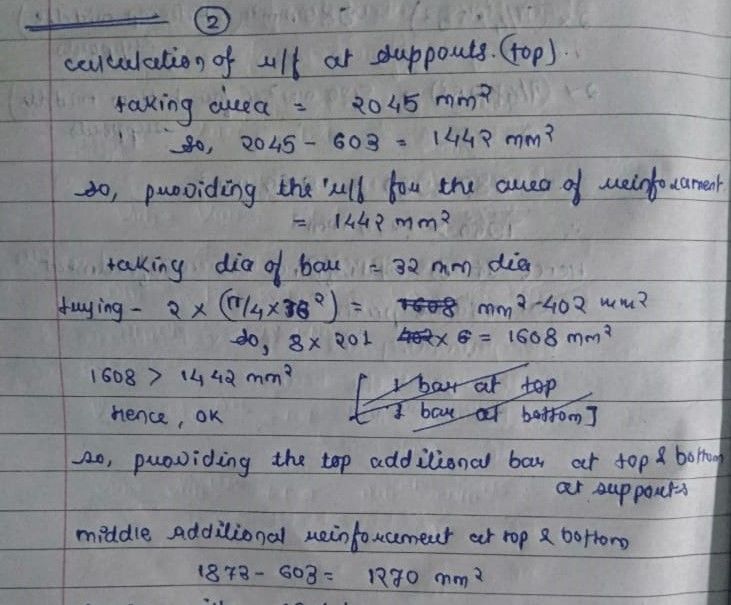 2
calculation of r/f at supports. (top).
taking area = 2045 mm²
so, 2045 - 603 = 1442 mm²
so, providing the r/f for the area of reinforcement
= 1442 mm²
taking dia of bar = 32 mm dia
trying - 2 × (π/4 × 16²) = 1608 mm² - 402 mm²
so, 8 × 201 402 × 6 = 1608 mm²
1608 > 1442 mm² [ 1 bar at top
Hence, OK 1 bar at bottom ]
so, providing the top additional bar at top & bottom
at supports
middle additional reinforcement at top & bottom
1873 - 603 = 1270 mm²